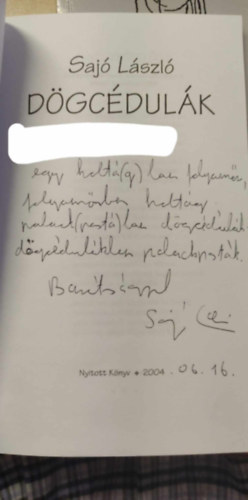 Sajó László
DÖGCÉDULÁK
egy holtá(g)ban folyamőr,
folyamőrben holtág
palack(postá)ban dögcédulák
dögcédulákban palackposták.
Barátsággal
Sajó Laci
Nyitott Könyv • 2004. 06. 16.